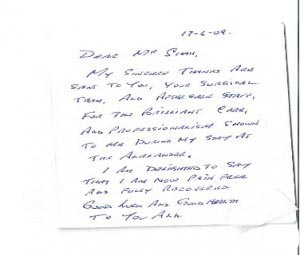 17-6-09.
Dear Mr Shah,
My Sincere Thanks Are
Sent To You, Your Surgical
Team, And Aftercare Staff,
For The Brilliant Care,
And Professionalism Shown
To Me During My Stay At
The Alexandra.
I Am Delighted To Say
That I Am Now Pain Free
And Fully Recovered
Good Luck And Good Health
To You All